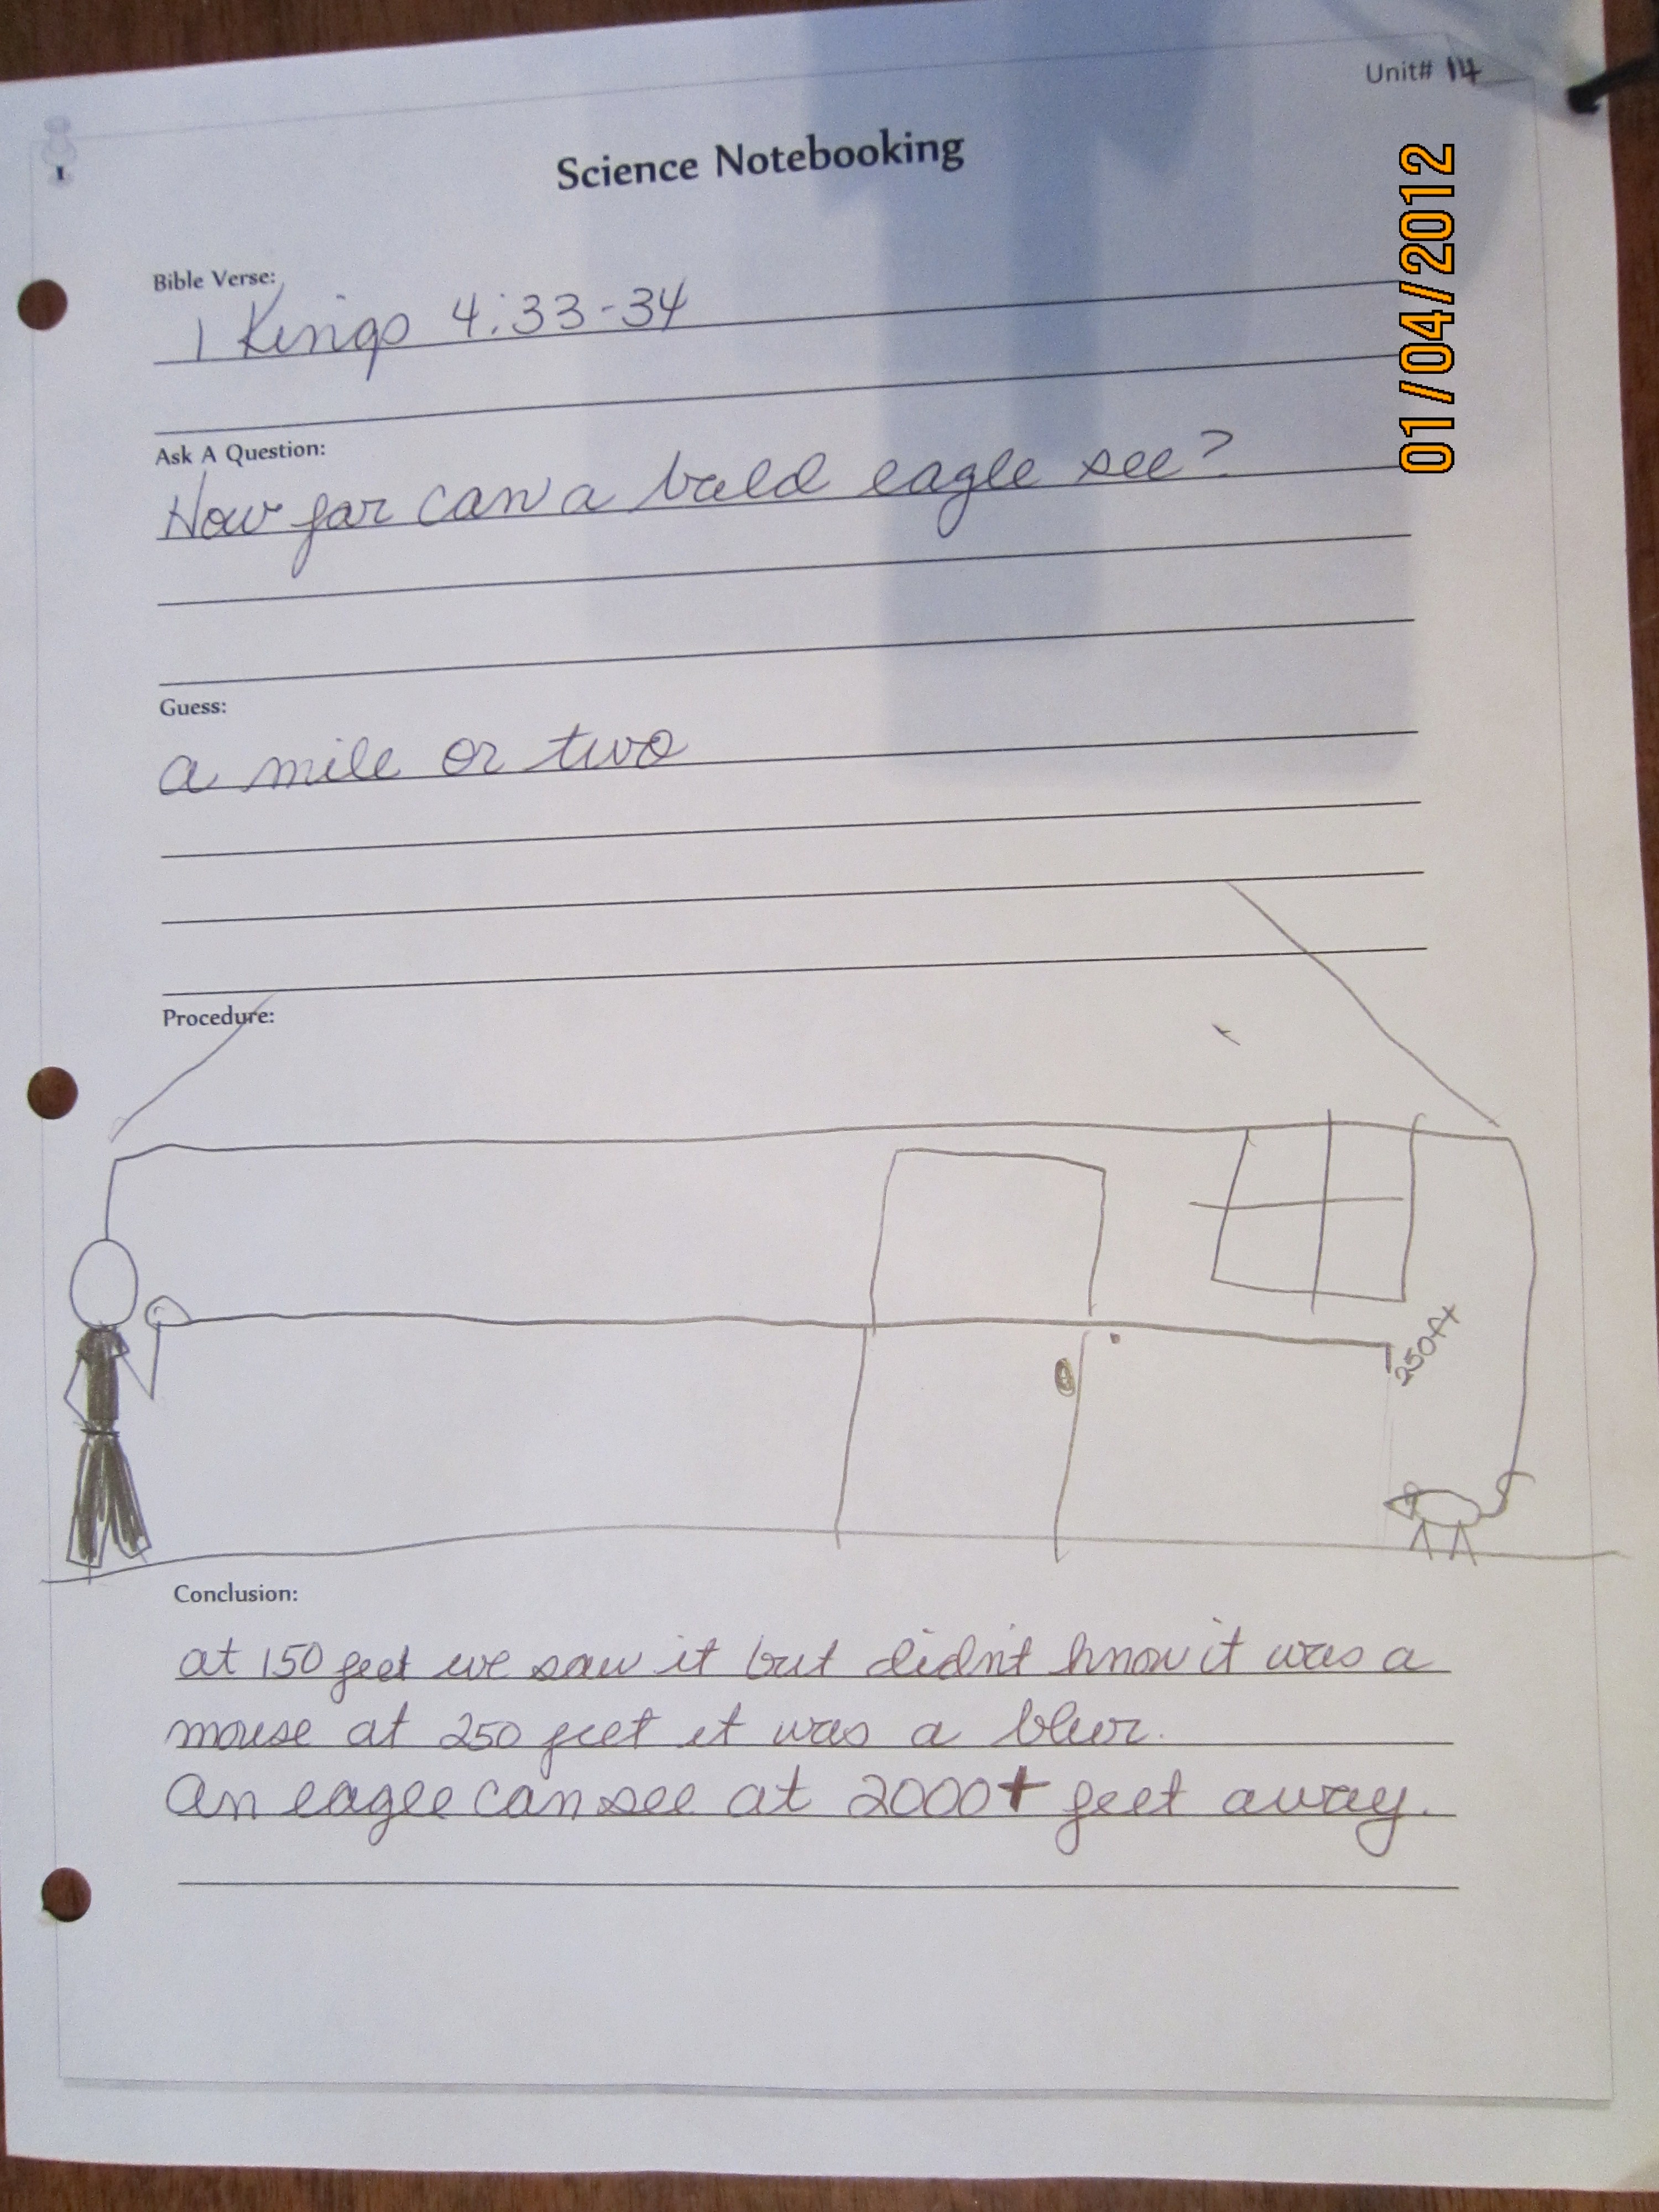 Unit# 14
Science Notebooking
01/04/2012
Bible Verse:
1 Kings 4:33-34
Ask A Question:
How far can a bald eagle see?
Guess:
a mile or two
Procedure:
250ft
Conclusion:
at 150 feet we saw it but didn't know it was a
mouse at 250 feet it was a blur.
An eagle can see at 2000+ feet away.